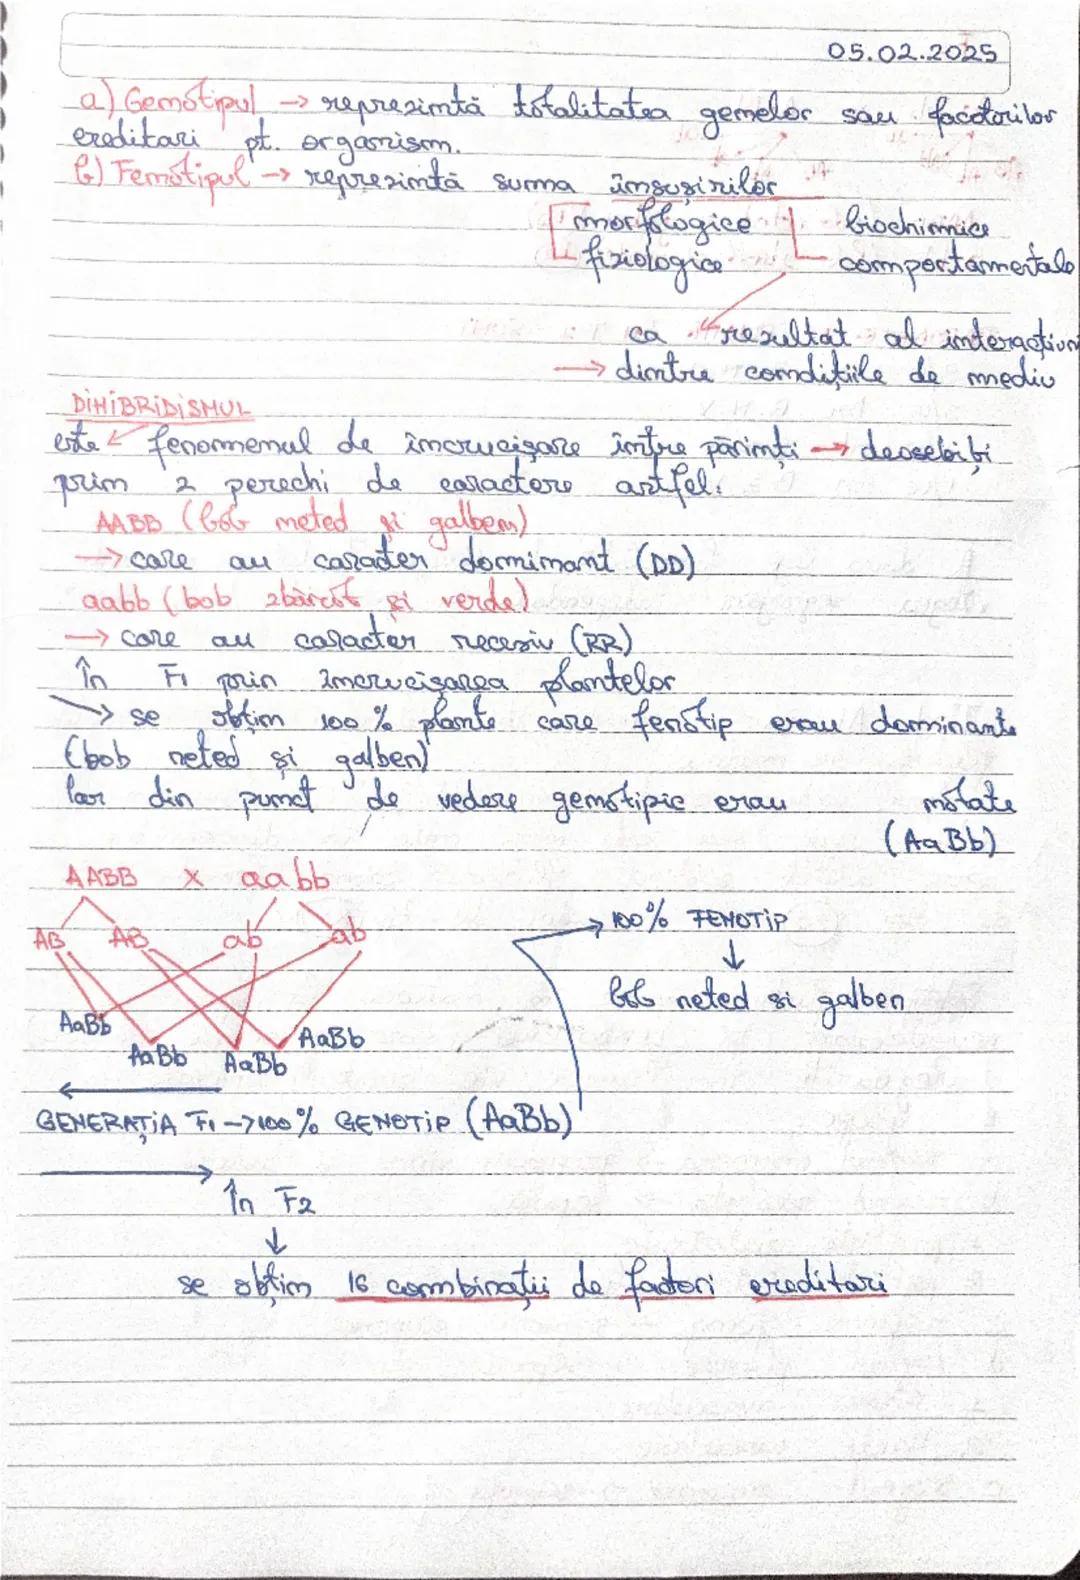 05.02.2025
a) Genotipul → reprezintă totalitatea genelor sau factorilor
ereditari pt. organism.
b) Fenotipul → reprezintă suma însușirilor
morfologice biochimice
fiziologice comportamentale
ca rezultat al interacțiuni
→ dintre condițiile de mediu
DIHIBRIDISMUL
este fenomenul de încrucișare între părinți → deosebiți
prin 2 perechi de caractere astfel:
AABB (bob neted și galben)
→ care au caracter dominant (DD)
aabb (bob zbârcit și verde)
→ care au caracter recesiv (RR)
În F1 prin încrucișarea plantelor
→ se obțin 100% plante care fenotip erau dominante
(bob neted și galben)
Iar din punct de vedere genotipic erau notate
(AaBb)
AABB X aabb
AB AB ab ab
AaBb AaBb AaBb AaBb
→ 100% FENOTIP
↓
bob neted si galben
GENERAȚIA F1 → 100% GENOTIP (AaBb)
În F2
↓
se obțin 16 combinații de factori ereditari